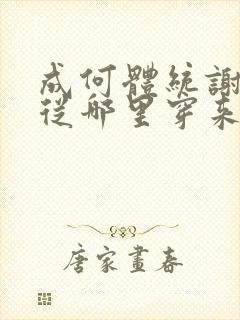 成何體統謝
從哪里穿來
唐家畫春